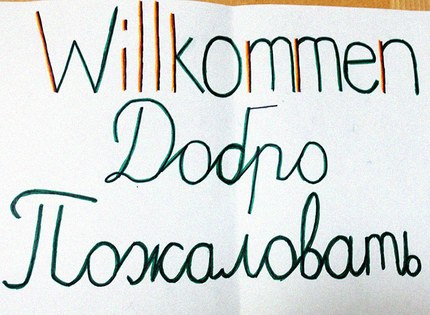 Willkommen
Добро
Пожаловать